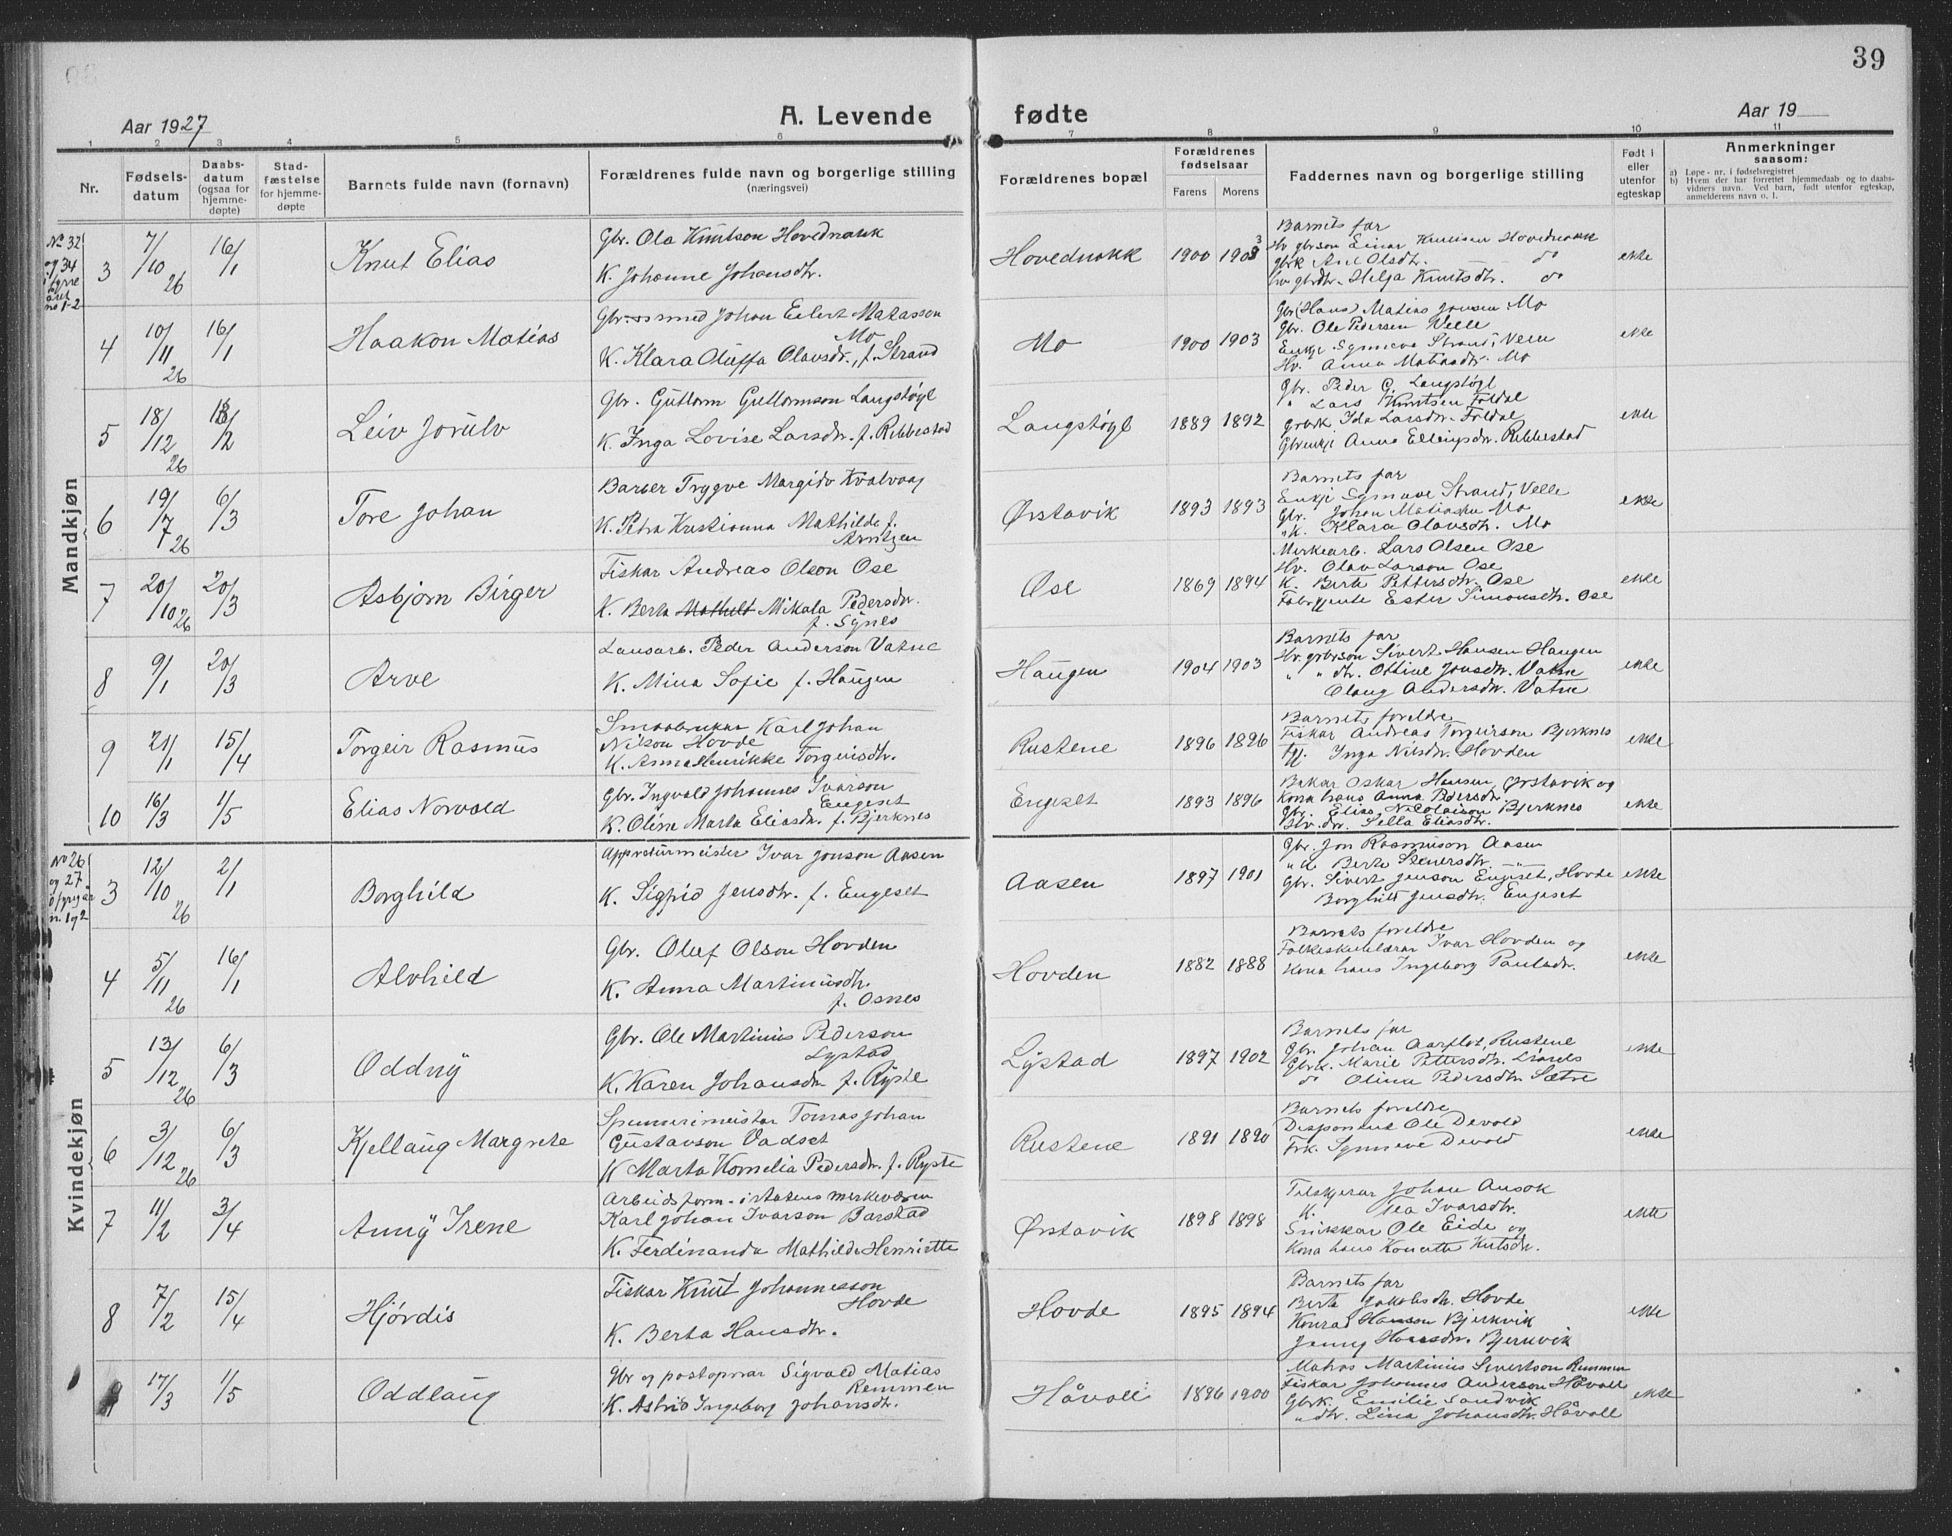 39
Aar 1927
A. Levende fødte
Aar 19
1 2 3 4 5 6 7 8 9 10 11
Nr.
Fødsels-
datum
Daabs-
datum
(ogsaa for
hjemme-
døpte)
Stad-
fæstelse
for hjemme-
døpte
Barnets fulde navn (fornavn)
Forældrenes fulde navn og borgerlige stilling
(næringsvei)
Forældrenes bopæl
Forældrenes
fødselsaar
Farens Morens
Faddernes navn og borgerlige stilling
Født i
eller
utenfor
egteskap
Anmerkninger
saasom:
a) Løpe-nr. i fødselsregistret
b) Hvem der har forrettet hjemmedaab og to daabs-
vidners navn. Ved barn, født utenfor egteskap,
anmelderens navn o. l.
Mandkjøn
No 32
og 34
fyrre
året
no 1-2
3 7/10 26 16/1 Knut Elias
Gbr. Ola Knutson Hovednakk
K. Johanne Johansdtr.
Hovednakk 1900 1903
Barnets far
Hv gbrson Einar Knutsen Hovednakk
gbrk Ane Olsdtr. do
hv gbrdtr. Helga Knutsdtr. do
ekte
4 10/11 26 16/1 Haakon Matias
Gbr. smed Johan Eilert Matiasson
Mo
K. Klara Oluffa Olavsdr., f. Strand
Mo 1900 1903
Gbr (Hans) Matias Jonsen Mo
Gbr. Ole Pedersen Velle
Enkje Synneva Strand, Velle
Hv. Anna Matiasdtr. Mo
ekte
5 18/12 26 13/2 Leiv Jorulv
Gbr. Guttorm Guttormson Langstøyl
K. Inga Lovise Larsdtr. f. Ribbestad
Langstøyl 1889 1892
Gbr. Peder G. Langstøyl
" Lars Knutsen Foldal
gbrk Ida Larsdtr. Foldal
Gbrenkje Anna Ellingsdtr. Ribbestad
ekte
6 19/7 26 6/3 Tore Johan
Barber Trygve Margido Kvalvaag
K. Petra Kristianna Mathilde f.
Arntzen
Ørstavik 1893 1893
Barnets far
Enkje Synneve Strand, Velle
Gbr. Johan Matiassen Mo
" k. Klara Olavsdtr. Mo
ekte
7 20/10 26 20/3 Asbjørn Birger
Fiskar Andreas Olson Ose
K. Berta Mathild Mikala Pedersdtr.
f. Synes
Ose 1869 1894
Merkearb. Lars Olsen Ose
Hv. Olav Larson Ose
K. Berte Pettersdtr. Ose
Fabrgjente Ester Simonsdtr. Ose
ekte
8 9/1 20/3 Arve
Lausarb. Peder Anderson Vatne
K. Mina Sofie f. Haugen
Haugen 1904 1903
Barnets far
Hv. gbrson Sivert Hansen Haugen
" " dtr. Ottine Jonsdtr. Vatne
Olaug Andersdtr. Vatne
ekte
9 21/1 15/4 Torgeir Rasmus
Smaabrukar Karl Johan
Nilson Hovde
K. Anna Henrikke Torgeirsdtr.
Rustene 1896 1896
Barnets foreldre
Fiskar Andreas Torgeirson Bjerknes
Inga Nilsdtr. Hovden
ekte
10 16/3 1/5 Elias Norvald
Gbr. Ingvald Johannes Ivarson
Engeset
K. Oline Marta Eliasdtr. f. Bjerknes
Engeset 1893 1896
Bakar Oskar Hansen, Ørstavik og
Kona hans Anna Pedersdtr.
Gbr. Elias Nicolaison Bjerknes
Sella Eliasdtr.
ekte
Kvindekjøn
No 26
og 27
3 12/10 26 2/1 Borghild
Appreturmeister Ivar Jonson Aasen
K. Sigrid Jensdtr. f. Engeset
Aasen 1897 1901
Gbr. Jon Rasmuson Aasen
" k Berte Steuersdtr. "
Gbr. Sivert Jenson Engeset, Hovde
Borghild Jensdtr. Engeset
ekte
4 5/11 26 16/1 Alvhild
Gbr. Oluf Olson Hovden
K. Anna Martinusdtr.
f. Osnes
Hovden 1882 1888
Barnets foreldre
Folkeskulelærar Ivar Hovden og
Kona hans Ingeborg Paulsdr.
ekte
5 13/12 26 6/3 Oddny
Gbr. Ole Martinus Pederson
Lystad
K. Karen Johansdtr f. Ryste
Lystad 1897 1902
Barnets far
Gbr. Johan Aarflot, Rustene
Gbrk. Marie Pettersdtr.
do Olina Pedersdtr. Sætre
ekte
6 3/12 26 6/3 Kjellaug Margrete
Spinnerimeistar Tomas Johan
Gustavson Vadset
K Marta Kornelia Pedersdtr. f. Ryste
Rustene 1891 1890
Barnets foreldre
Disponent Ole Devold
Frk. Synneve Devold
ekte
7 11/2 3/4 Anny Irene
Arbeidsform. i statens merkevæsen
Karl Johan Ivarson Barstad
K. Ferdinanda Mathilde Henriette
Ørstavik 1898 1898
Tilskjerar Johan Ansok
K. Tea Ivarsdtr.
Snikkar Ole Eide og
Kona hans
ekte
8 7/2 15/4 Hjørdis
Fiskar Knut Johannesson
Hovde
K. Berta Hansdtr.
Hovde 1895 1894
Barnets far
Berte Jakobsdtr. Hovde
Konrad Hansson Bjerkvik
Jenny Hansdtr. Bjerkvik
ekte
9 17/3 1/5 Oddlaug
Gbr og postopnar Sigvald Matias
Remmen
K. Astrid Ingeborg Johansdtr.
Håvoll 1896 1900
Matros Martinus Sivertson Remmen
Fiskar Johannes Anderson Håvoll
Gbrk. Emilie Sandvik
" dtr. Lina Johansdtr. Håvoll
ekte